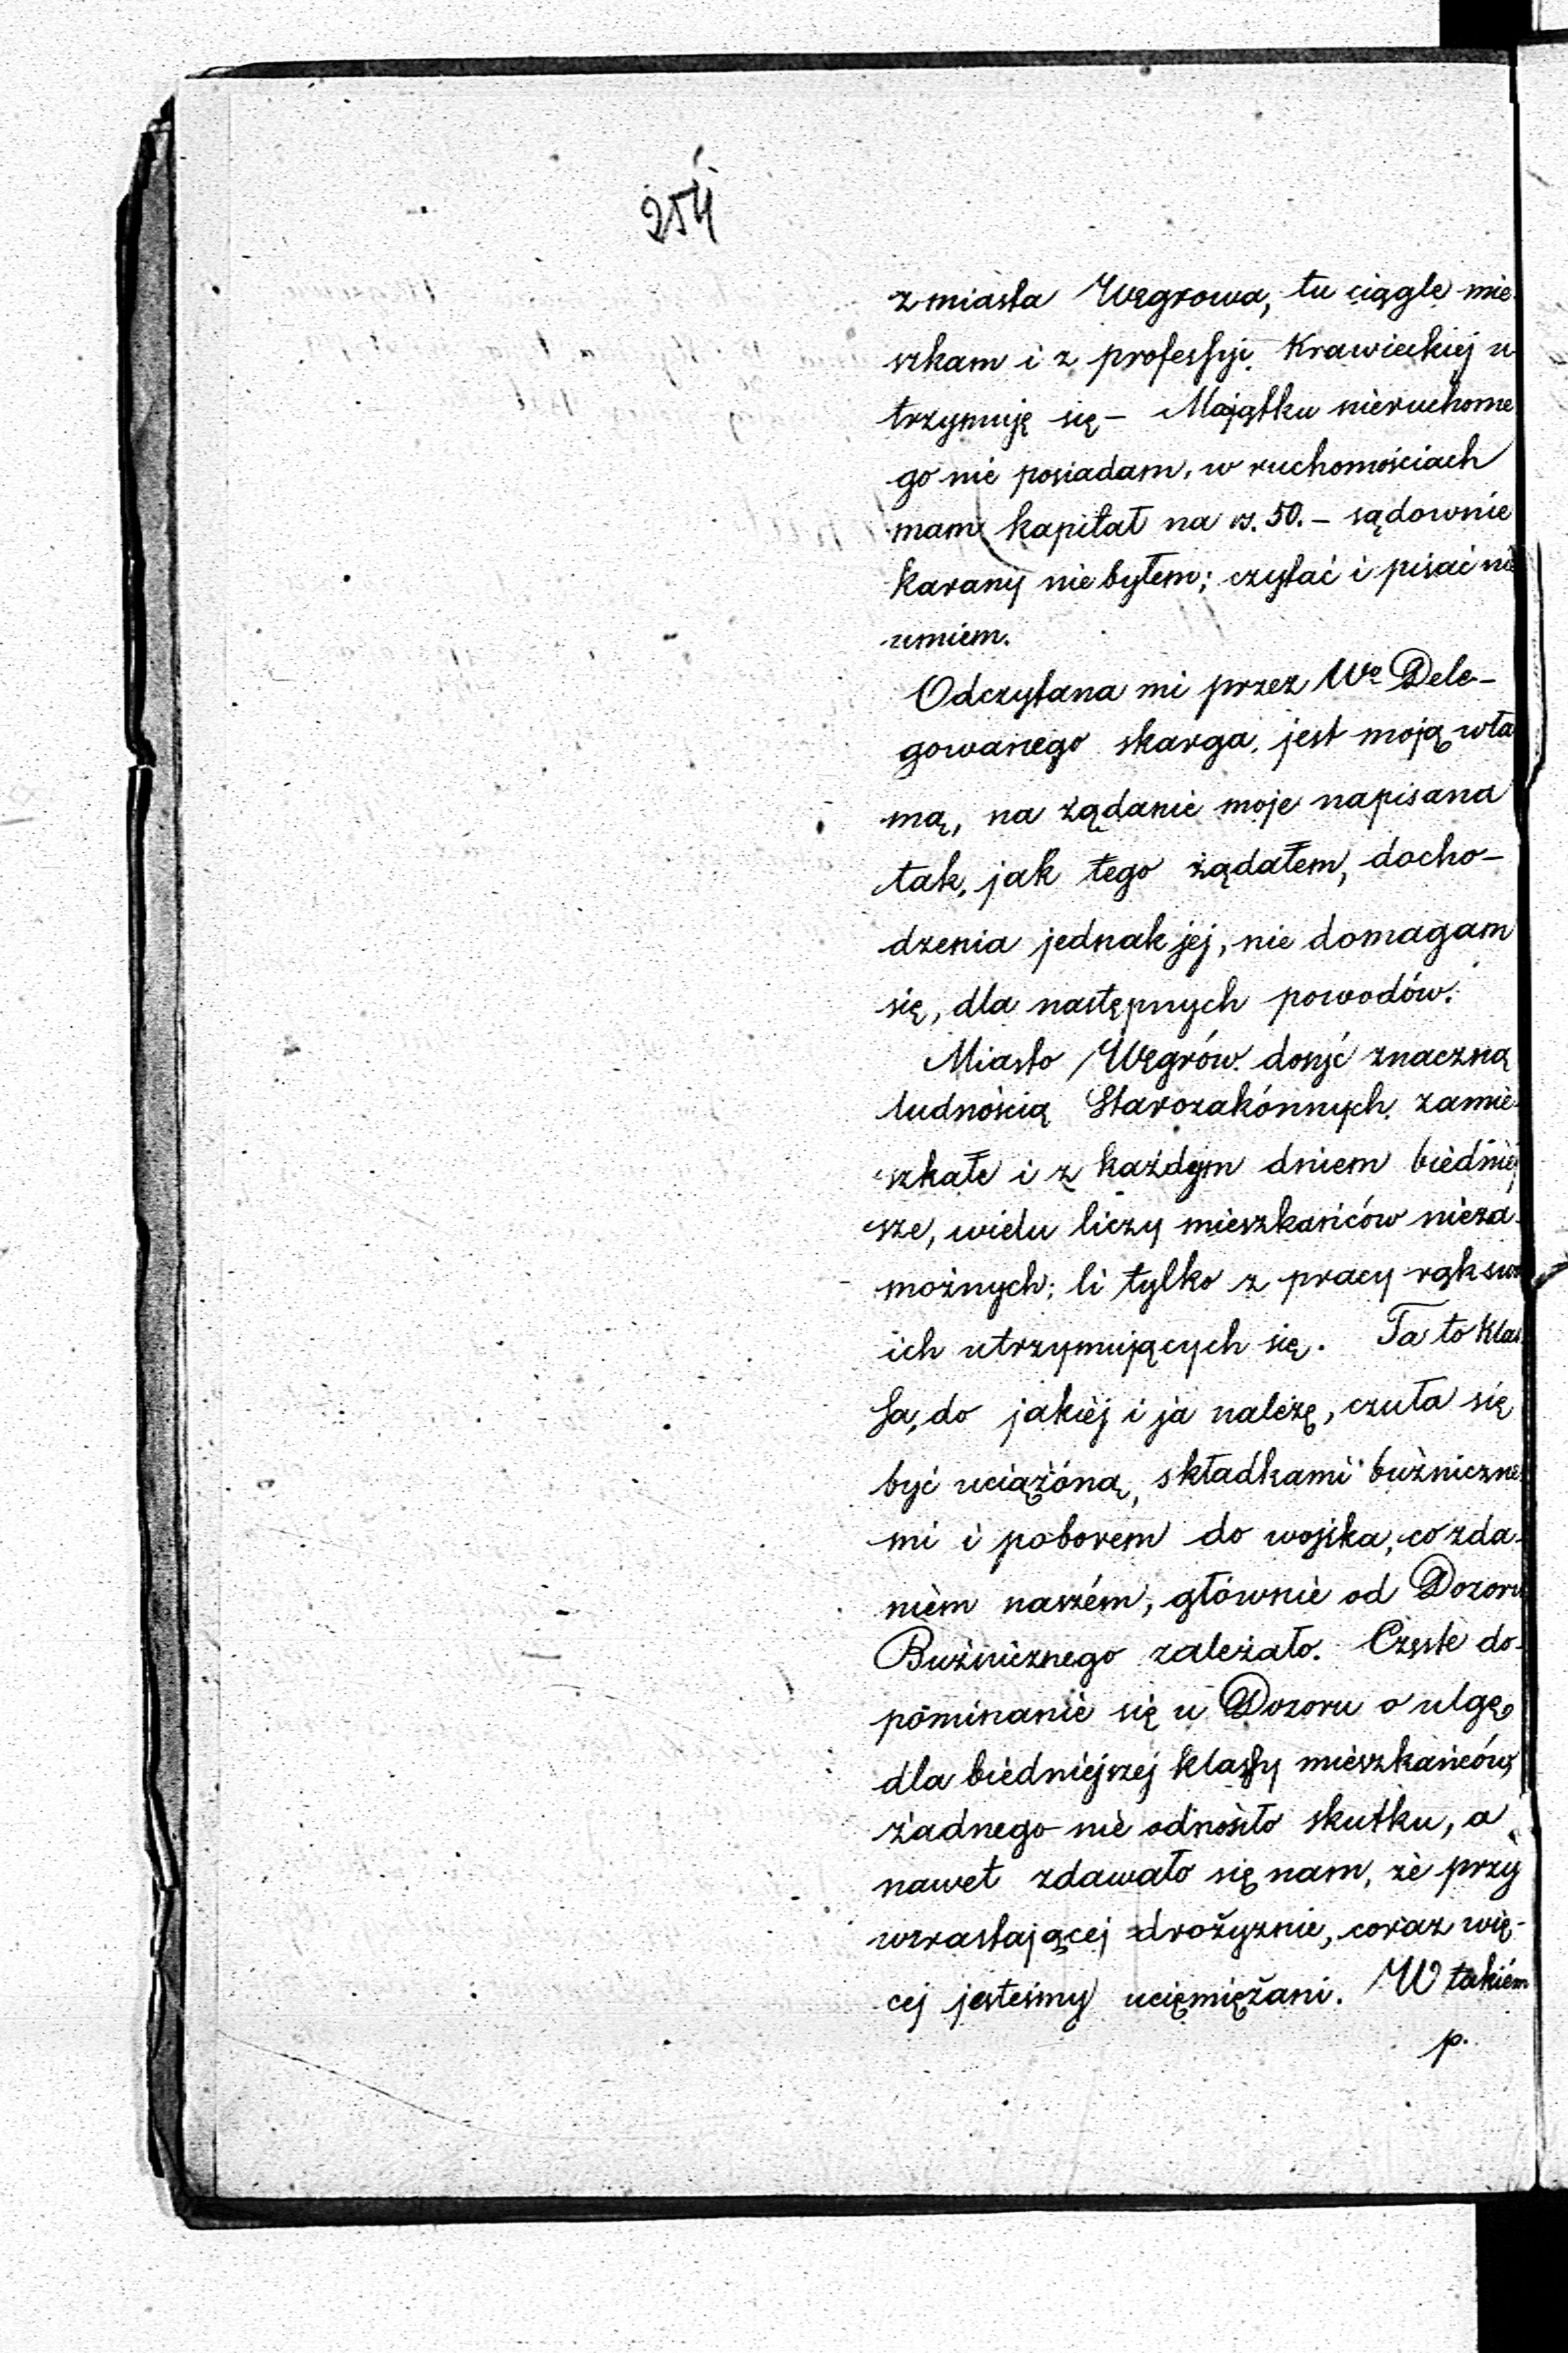 254
z miasta Węgrowa, tu ciągle mie
szkam i z professyi Krawieckiej u
trzymuję się – Majątku nieruchome
go nie posiadam, w ruchomościach
mam kapitał na rs. 50. – sądownie
karany nie byłem; czytać i pisać nie
umiem.
Odczytana mi przez Wo Dele-
gowanego skarga, jest moją wła
sną, na żądanie moje napisana
tak, jak tego żądałem, docho-
dzenia jednak jej, nie domagam
się, dla następnych powodów.
Miasto Węgrów dosyć znaczną
ludnością Starozakónnych zamie-
szkałe i z każdym dniem biedniej
sze, wielu liczy mieszkańców nieza-
możnych; li tylko z pracy rąk swo
ich utrzymujących się. Ta to klas
sa, do jakiej i ja należę, czuła się
być uciążóną, składkami bużniczne
mi i poborem do wojska, co zda-
niem naszém, głównie od Dozoru
Bużnicznego zależało. Częste do-
pominanie się u Dozoru o ulgę
dla biedniejszej klassy mieszkańców,
żadnego nie odnosiło skutku, a
nawet zdawało się nam, że przy
wzrastającej drożyznie, coraz wię-
cej jesteśmy ucięmiężani. W takiém
p.